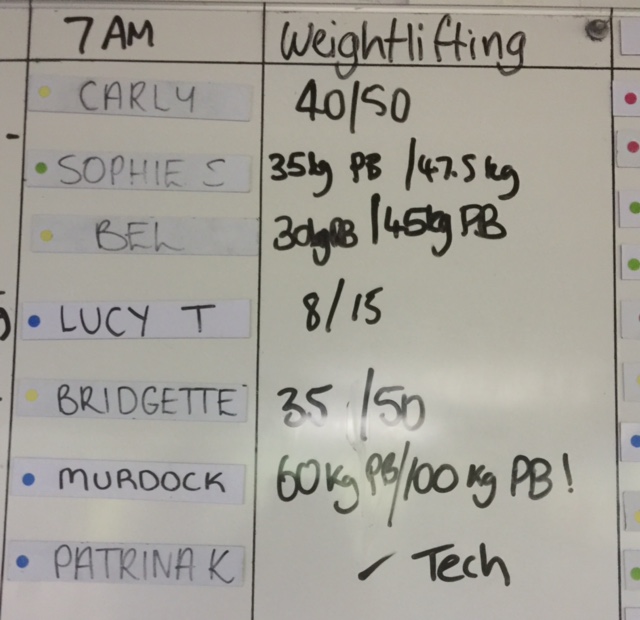 7 AM Weightlifting
CARLY 40/50
SOPHIE S 35kg PB /47.5kg
BEL 30kg PB /45kg PB
LUCY T 8/15
BRIDGETTE 35 /50
MURDOCK 60kg PB/100kg PB!
PATRINA K ✓ Tech